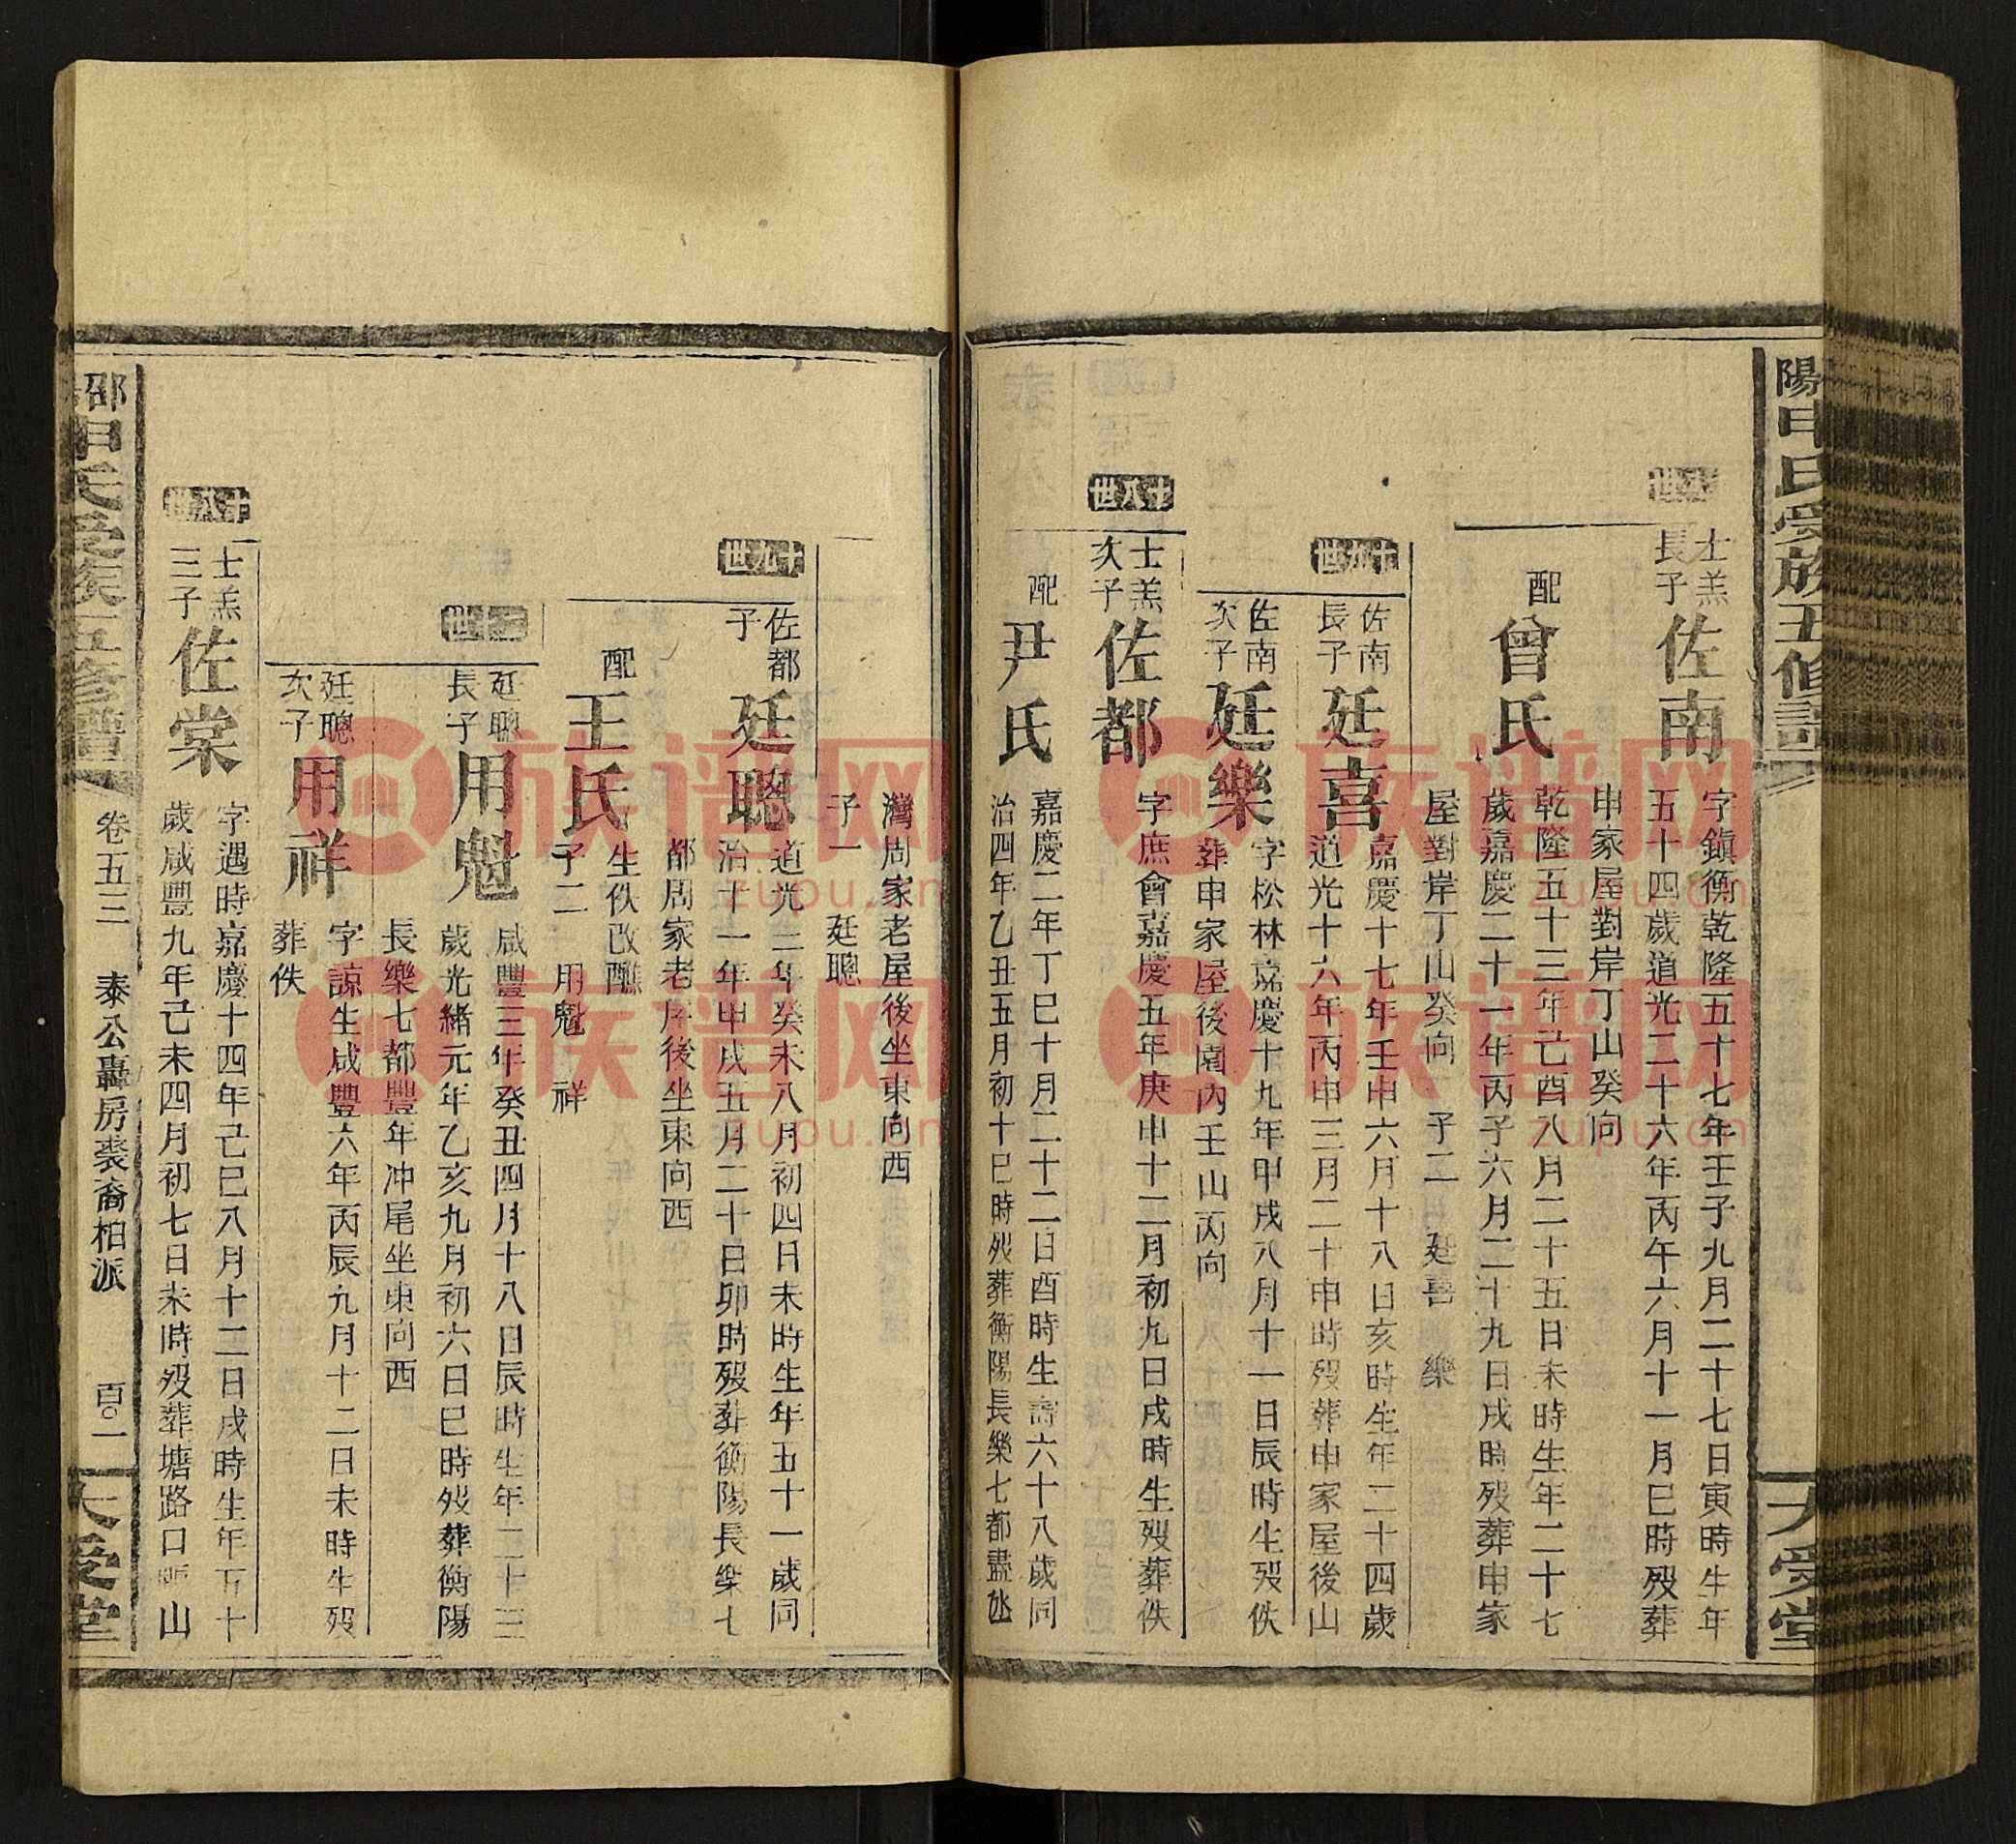 陽申氏受族五修譜
大受堂
十八世
士羔長子
佐南
字鎮衡乾隆五十七年壬子九月二十七日寅時生年
五十四歲道光二十六年丙午六月十一月巳時歿葬
申家屋對岸丁山癸向
配
曾氏
乾隆五十三年己酉八月二十五日未時生年二十七
歲嘉慶二十一年丙子六月二十九日戌時歿葬申家
屋對岸丁山癸向 子二 廷喜 樂
十九世
佐南長子
廷喜
嘉慶十七年壬申六月十八日亥時生年二十四歲
道光十六年丙申三月二十申時歿葬申家屋後山
佐南次子
廷樂
字松林嘉慶十九年甲戌八月十一日辰時生歿佚
葬申家屋後園內壬山丙向
十八世
士羔次子
佐都
字庶會嘉慶五年庚申十二月初九日戌時生歿葬佚
配
尹氏
嘉慶二年丁巳十月二十二日酉時生壽六十八歲同
治四年乙丑五月初十巳時歿葬衡陽長樂七都盡氹
灣周家老屋後坐東向西
子一 廷聰
十九世
佐都子
廷聰
道光二年癸未八月初四日未時生年五十一歲同
治十一年申戌五月二十日卯時歿葬衡陽長樂七
都周家老屋後坐東向西
配
王氏
生佚改醮
子二 用魁 祥
二十世
廷聰長子
用魁
咸豐三年癸丑四月十八日辰時生年二十三
歲光緒元年乙亥九月初六日巳時歿葬衡陽
長樂七都豐年冲尾坐東向西
廷聰次子
用祥
字諒生咸豐六年丙辰九月十二日未時生歿
葬佚
十八世
士羔三子
佐棠
字遇時嘉慶十四年己巳八月十二日戌時生年五十
歲咸豐九年己未四月初七日未時歿葬塘路口 山
邵 申氏受族五修譜
卷五三
泰公轟房裘裔柏派
百〇一
大受堂
族谱网
zupu.cn
族谱网
zupu.cn
族谱网
zupu.cn
族谱网
zupu.cn